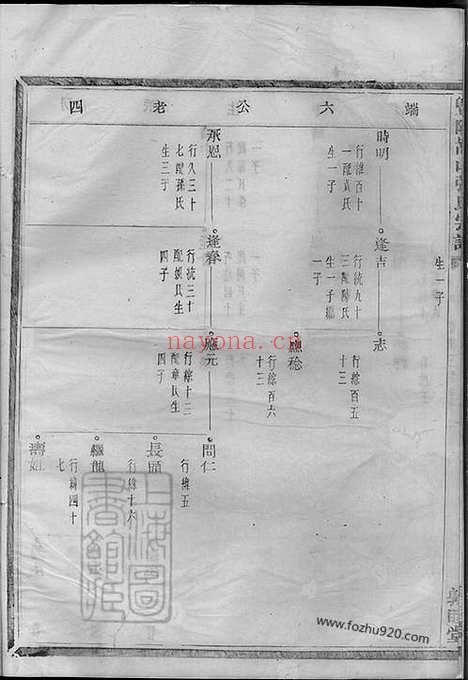 端六公老四
生一子
時明
行維百十
一配袁氏
生一子
逢吉
行統九十
三配陽氏
生一子繼
一子
志
行綜百五
十三
應稔
行綜百六
十三
承恩
行久三十
七配孫氏
生三子
逢春
行統三十
配姚氏生
四子
應元
行綜十二
配章氏生
四子
問仁
行維五
長頭
行維十六
繼龍
行維四十
七
壽姐
上海圖書館藏
nayona.cn
www.fozhu920.com